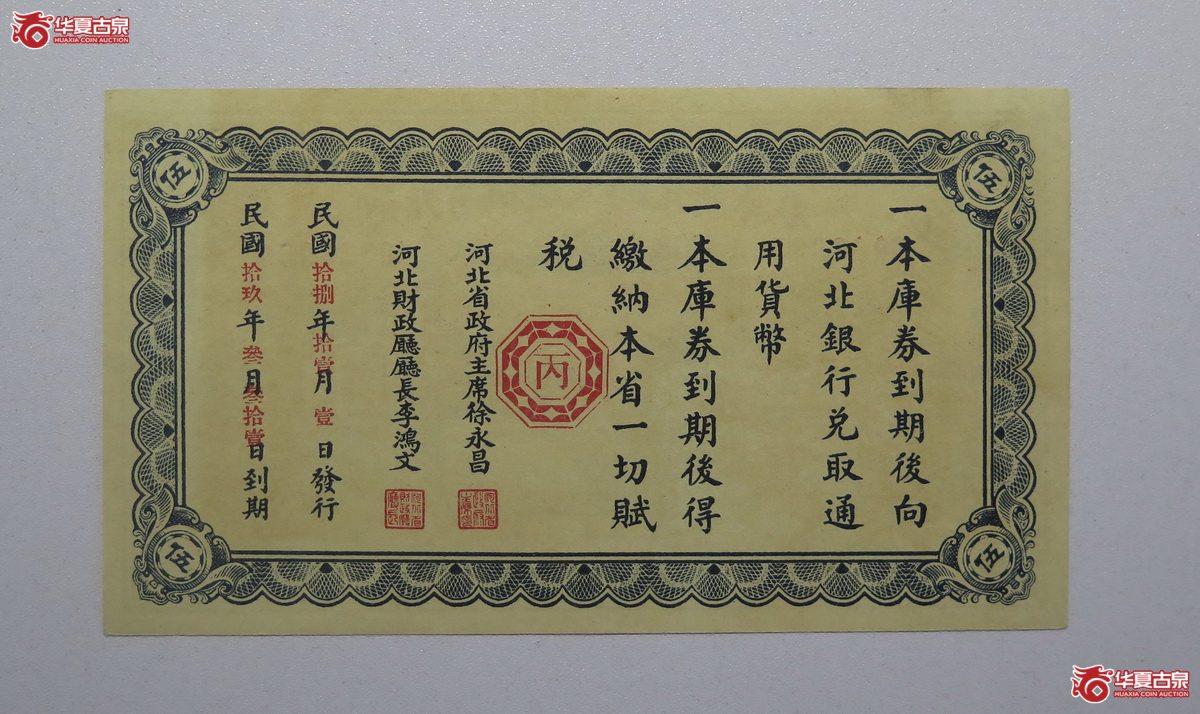 华夏古泉
HUAXIA COIN AUCTION
伍
伍
一本庫券到期後向
河北銀行兑取通
用貨幣
一本庫券到期後得
繳納本省一切賦
税
丙
河北省政府主席徐永昌
河北財政廳廳長李鴻文
民國拾捌年拾壹月壹日發行
民國拾玖年叁月叁拾壹日到期
伍
伍
华夏古泉
HUAXIA COIN AUCTION